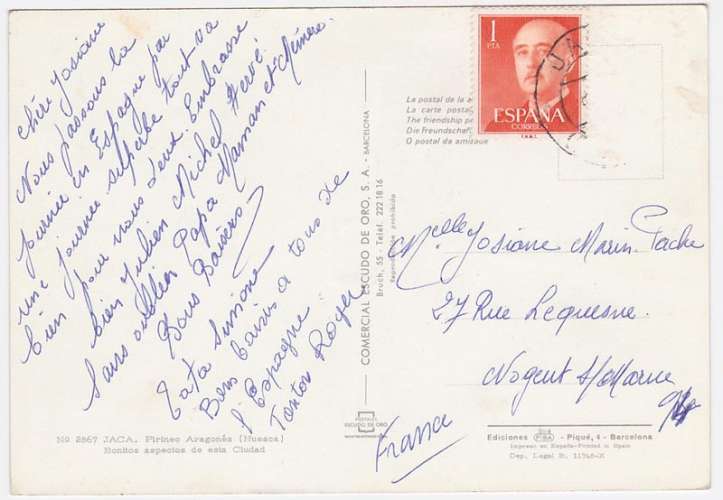 Chère Josiane
Nous passons la
journée en Espagne par
une journée superbe tout va
bien pour nous deux. Embrasse
bien Julien Michel Hervé.
Sans oublier Papa Maman et Mémère.
Bons Baisers
Tata Simone
Bons baisers à tous de
l'Espagne
Tonton Roger
No 2867 JACA. Pirineo Aragonés (Huesca)
Bonitos aspectos de esta Ciudad
COMERCIAL ESCUDO DE ORO, S. A. - BARCELONA
Bruch, 55 - Teléf. 222 18 16
Reproducción prohibida
POSTALES
ESCUDO DE ORO
Le postal de la a
La carte postal
The friendship po
Die Freundschaf
O postal da amizade
1
PTA
ESPAÑA
CORREOS
F.N.M.T.
JA
Melle Josiane Marin Pache
27 Rue Lequesne
Nogent s/Marne
94
France
Ediciones FISA - Piqué, 4 - Barcelona
Impreso en España-Printed in Spain
Dep. Legal B. 11746-X